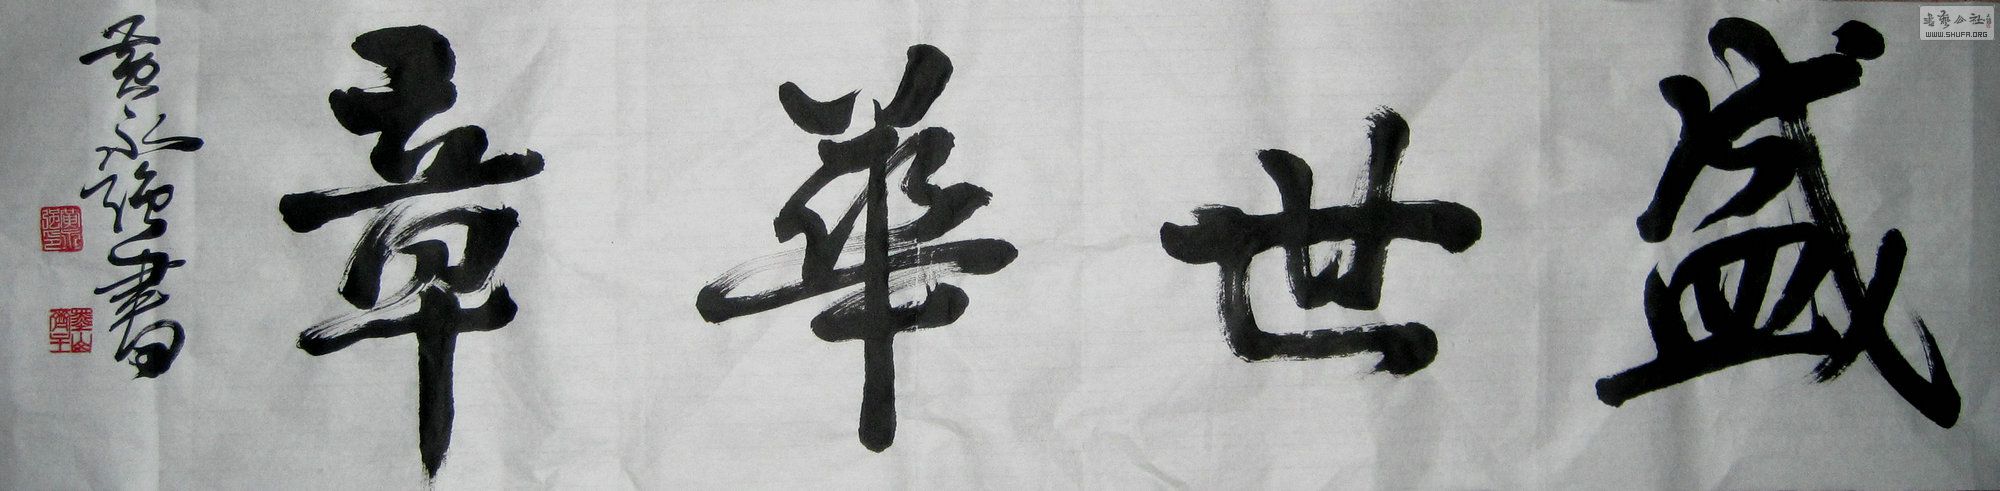 盛世華章
黄永强書
書藝公社
WWW.SHUFA.ORG